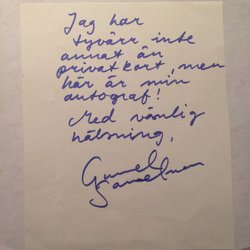 Jag har
tyvärr inte
annat än
privatkort, men
här är min
autograf!
Med vänlig
hälsning,
Gunnel